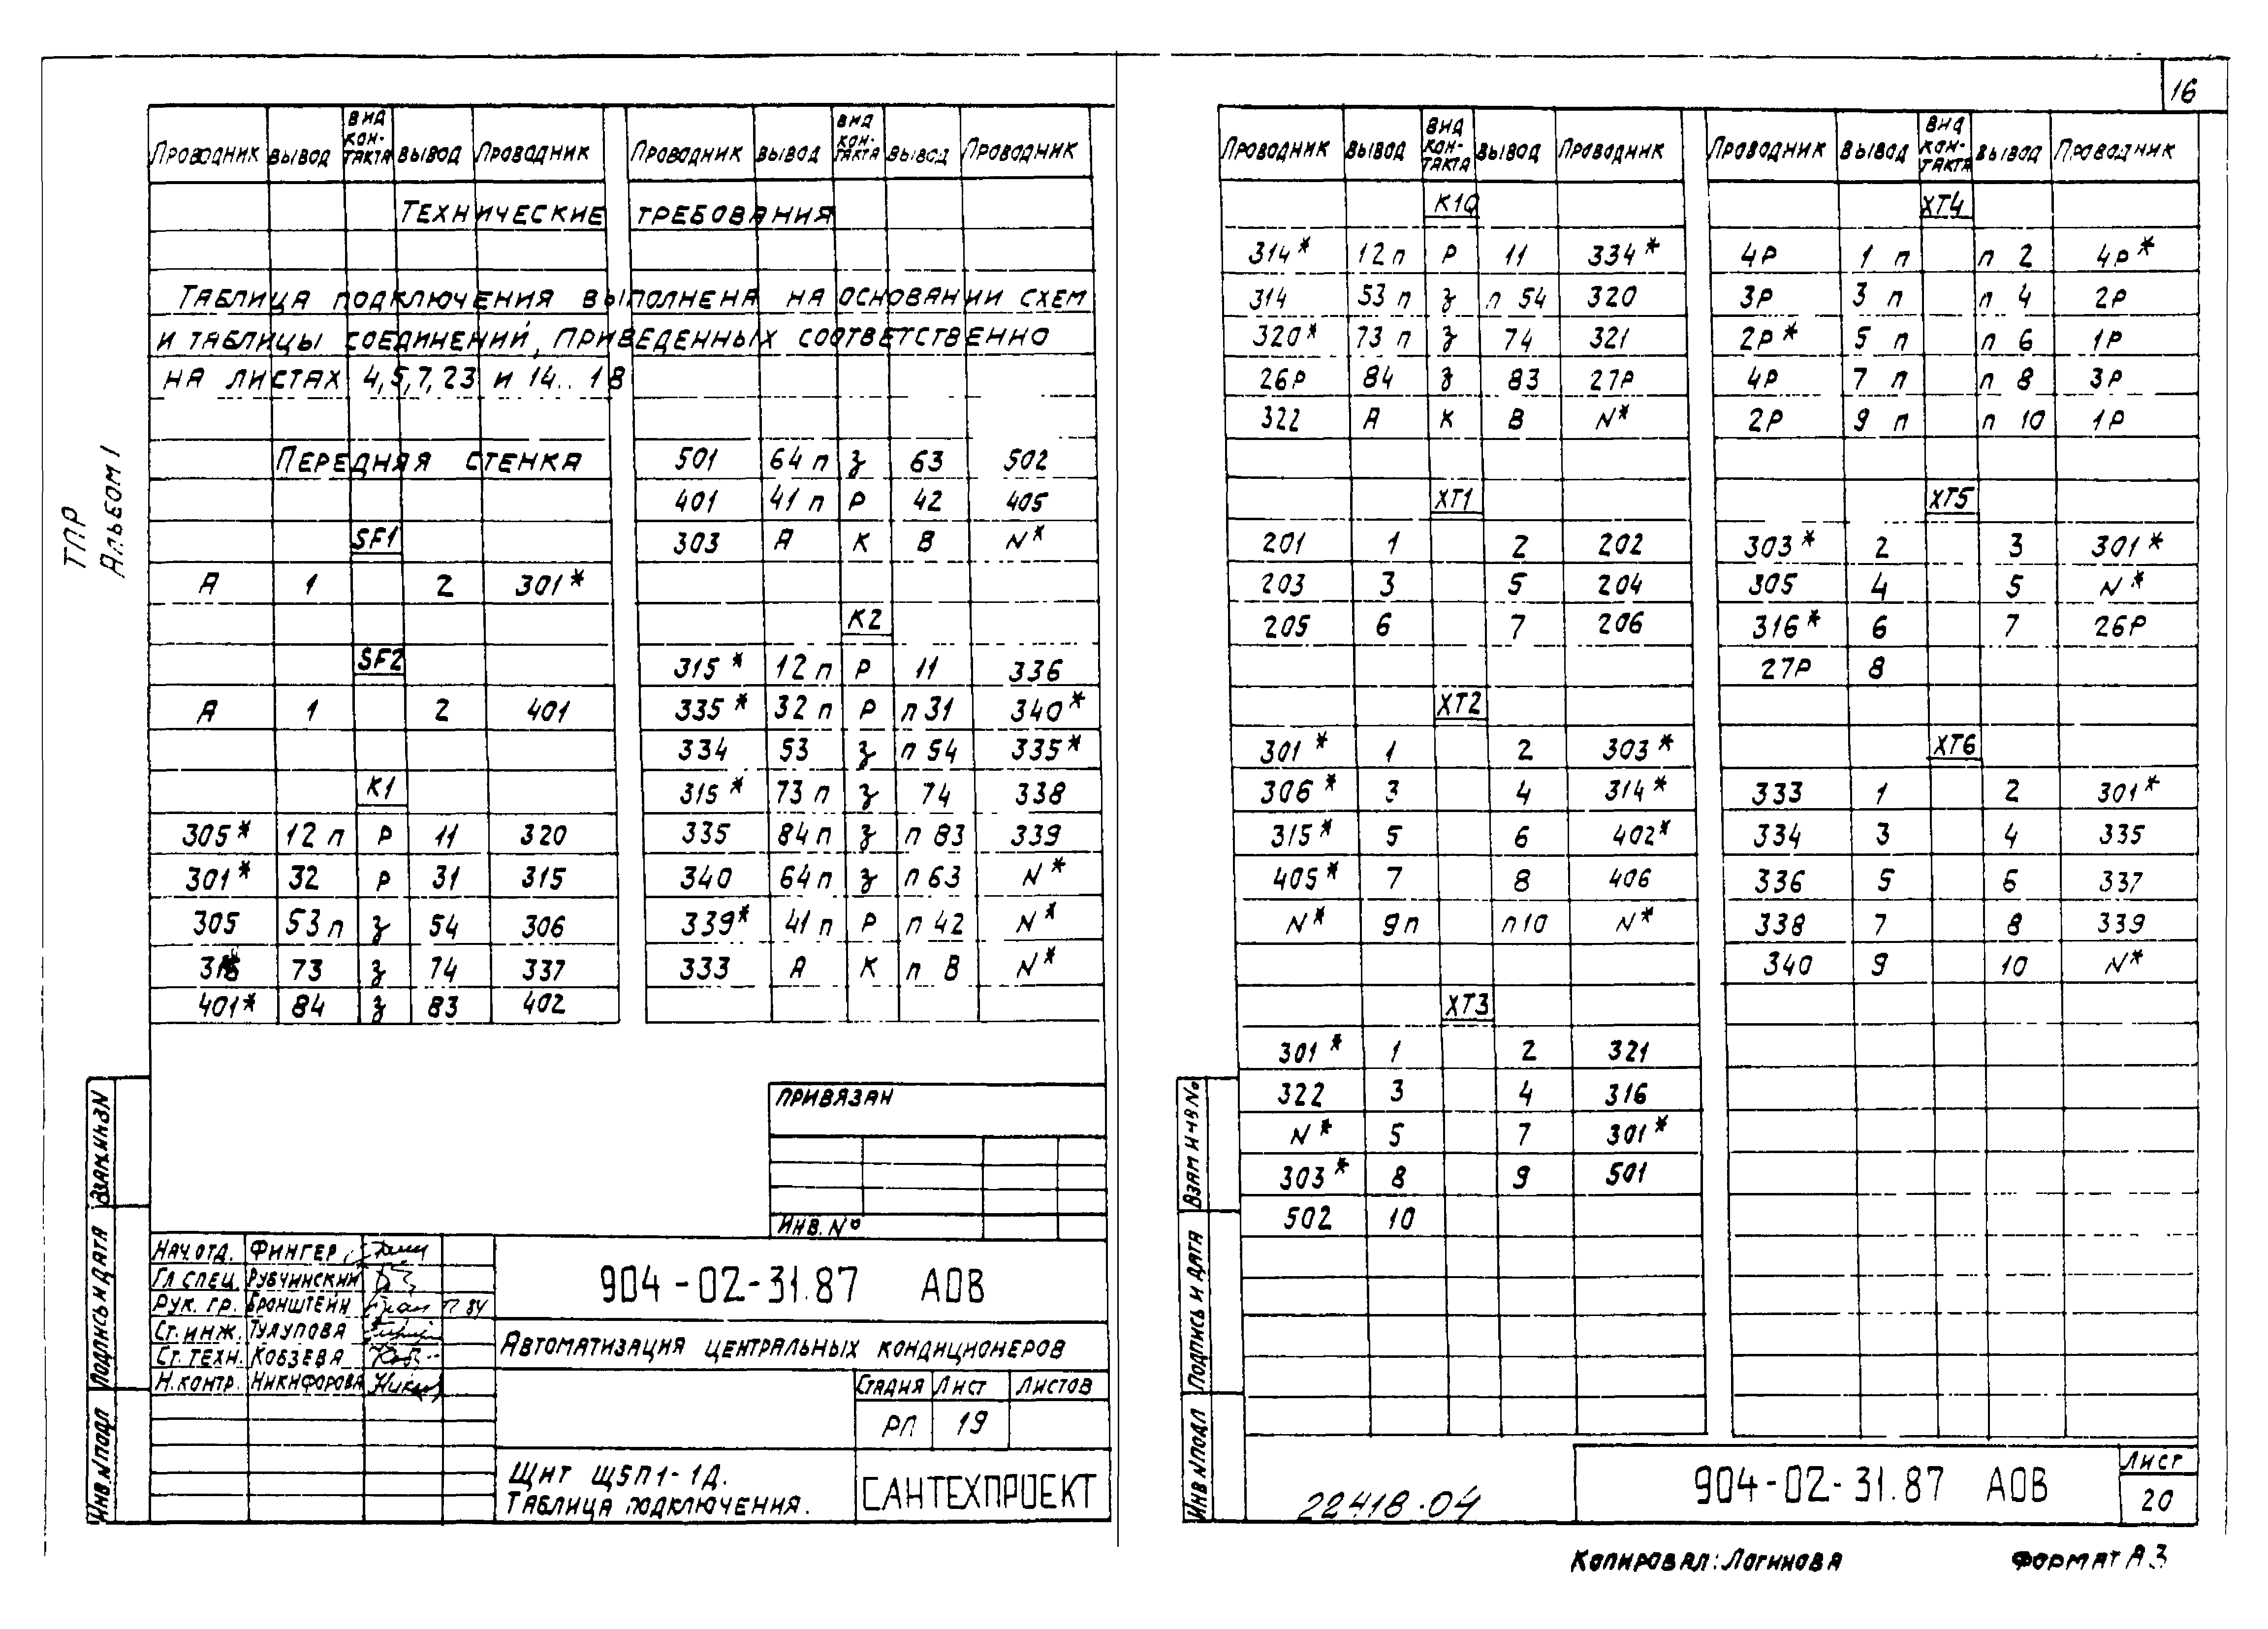 16
ТПР
Альбом I
Проводник Вывод Вид контакта Вывод Проводник
Технические требования
Таблица подключения выполнена на основании схем
и таблицы соединений, приведенных соответственно
на листах 4,5,7,23 и 14..18
Передняя стенка
SF1
А 1 2 301*
SF2
А 1 2 401
К1
305* 12 п Р 11 320
301* 32 Р 31 315
305 53 п з 54 306
73 з 74 337
401* 84 з 83 402
Проводник Вывод Вид контакта Вывод Проводник
501 64 п з 63 502
401 41 п Р 42 405
303 А К В N*
К2
315* 12 п Р 11 336
335* 32 п Р п 31 340*
334 53 з п 54 335*
315* 73 п з 74 338
335 84 п з п 83 339
340 64 п з п 63 N*
339* 41 п Р п 42 N*
333 А К п В N*
Привязан
Инв. №
Нач. отд. Фингер
Гл спец. Рубчинский
Рук. гр. Бронштейн
Ст. инж. Тулупова
Ст. техн. Кобзева
Н. контр. Никифорова
904-02-31.87 АОВ
Автоматизация центральных кондиционеров
Стадия Лист Листов
РП 19
ЩНТ Щ5П1-1Д.
Таблица подключения.
САНТЕХПРОЕКТ
Взам инв N
Подпись и дата
Инв. N подл
Проводник Вывод Вид контакта Вывод Проводник
К1Q
314* 12 п Р 11 334*
314 53 п з п 54 320
320* 73 п з 74 321
26Р 84 з 83 27Р
322 А К В N*
XT1
201 1 2 202
203 3 5 204
205 6 7 206
XT2
301* 1 2 303*
306* 3 4 314*
315* 5 6 402*
405* 7 8 406
N* 9 п п 10 N*
XT3
301* 1 2 321
322 3 4 316
N* 5 7 301*
303* 8 9 501
502 10
Проводник Вывод Вид контакта Вывод Проводник
XT4
4Р 1 п п 2 4Р*
3Р 3 п п 4 2Р
2Р* 5 п п 6 1Р
4Р 7 п п 8 3Р
2Р 9 п п 10 1Р
XT5
303* 2 3 301*
305 4 5 N*
316* 6 7 26Р
27Р 8
XT6
333 1 2 301*
334 3 4 335
336 5 6 337
338 7 8 339
340 9 10 N*
Взам инв №
Подпись и дата
Инв N подл
22418-04
904-02-31.87 АОВ
Лист
20
Копировал: Логинова Формат А3